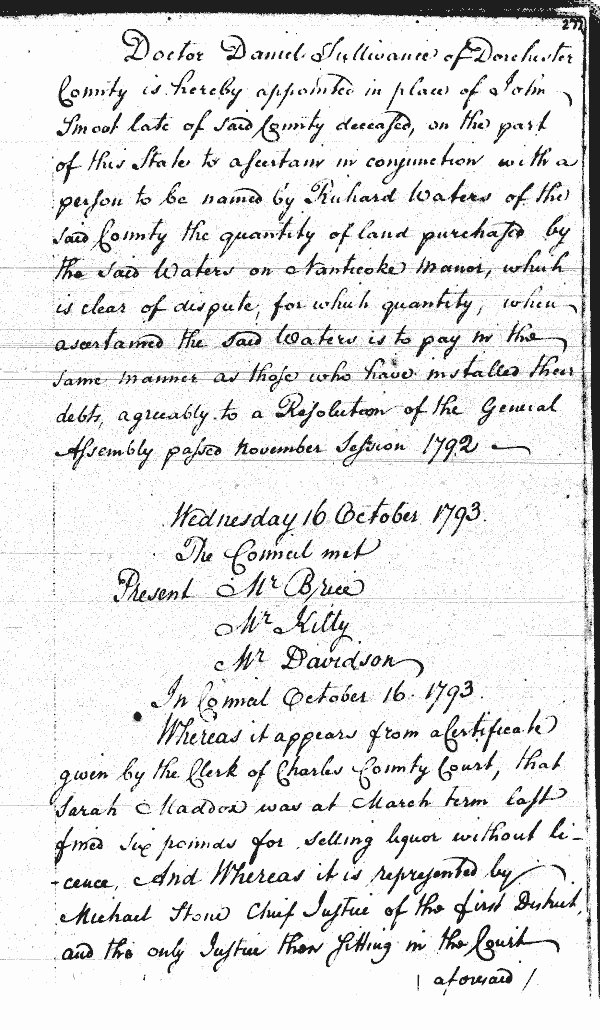 277
Doctor Daniel Sullivane of Dorchester
County is hereby appointed in place of John
Smoot late of said County deceased, on the part
of this State to ascertain in conjunction with a
person to be named by Richard Waters of the
said County the quantity of land purchased by
the said Waters on Nanticoke Manor, which
is clear of dispute, for which quantity, when
ascertained the said Waters is to pay in the
same manner as those who have installed their
debts, agreeably to a Resolution of the General
Assembly passed November Session 1792
Wednesday 16 October 1793.
The Council met
Present Mr Brice
Mr Kilty
Mr Davidson
In Council October 16. 1793.
Whereas it appears from a Certificate
given by the Clerk of Charles County Court, that
Sarah Maddox was at March term last
fined six pounds for selling liquor without li-
-cence, And Whereas it is represented by
Michael Stone Chief Justice of the first District,
and the only Justice then sitting in the Court
| aforesaid /